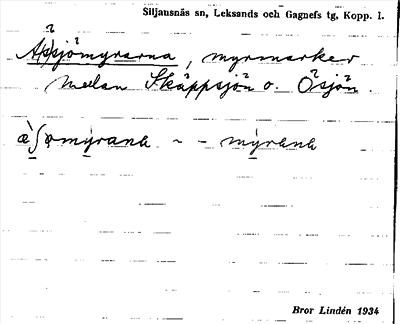 Siljansnäs sn, Leksands och Gagnefs tg, Kopp. l.
A(p)sjömyrarna, myrmarker
mellan Skäppsjön o. Ösjön.
- - myrana
Bror Lindén 1934